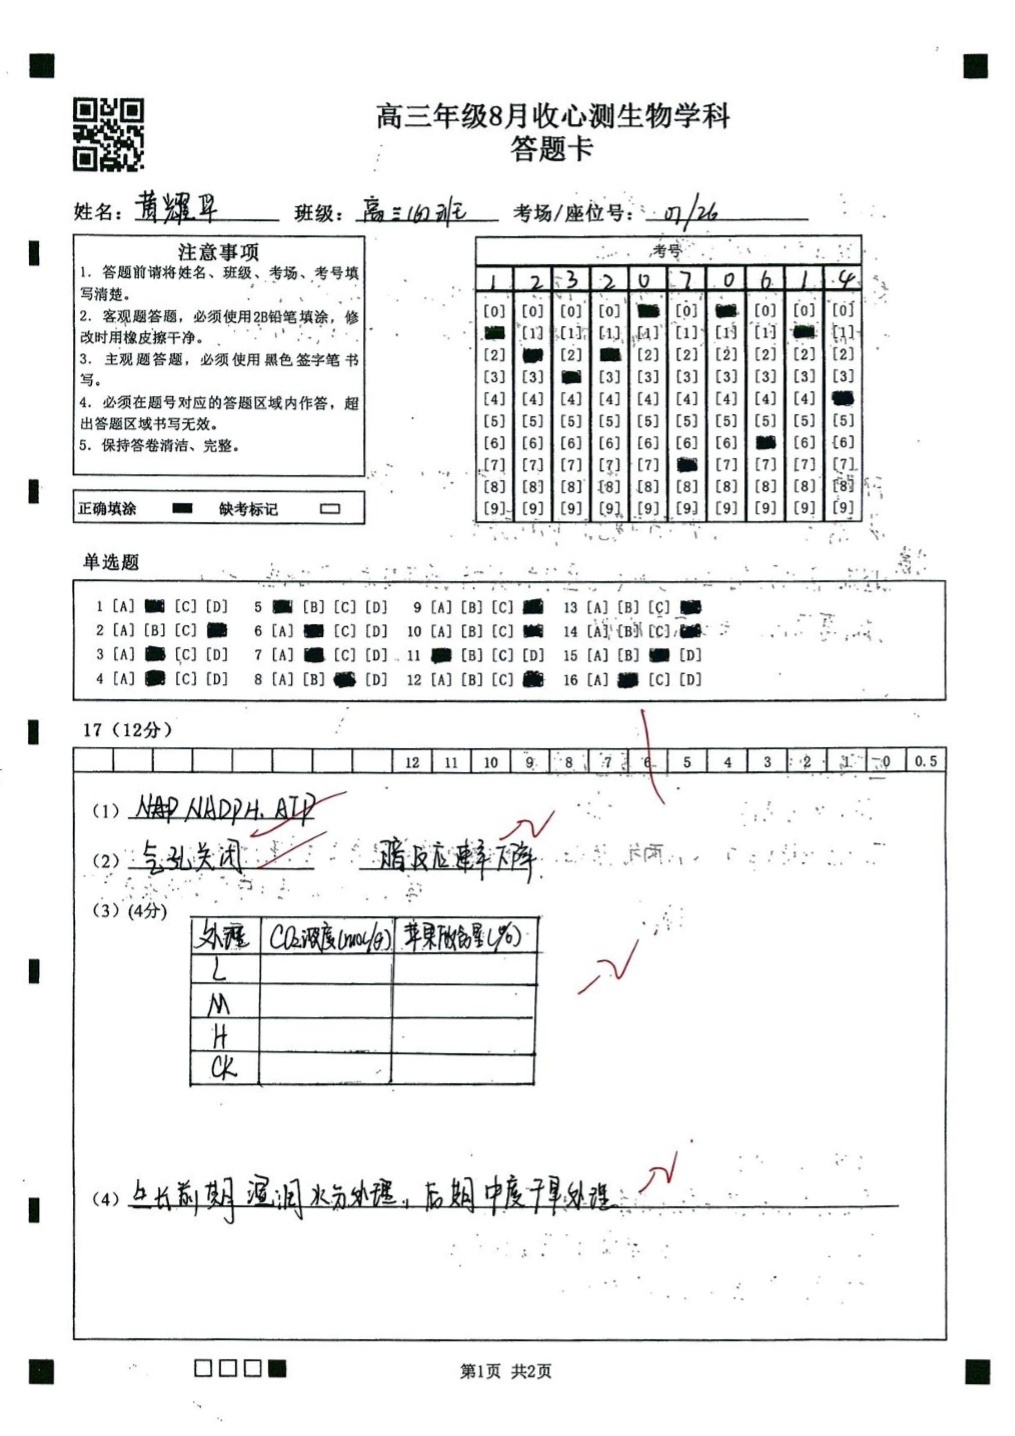 高三年级8月收心测生物学科
答题卡
姓名：黄耀 班级：高三(6)班 考场/座位号：07/26
注意事项
1. 答题前请将姓名、班级、考场、考号填
写清楚。
2. 客观题答题，必须使用2B铅笔填涂，修
改时用橡皮擦干净。
3. 主观题答题，必须使用黑色签字笔书
写。
4. 必须在题号对应的答题区域内作答，超
出答题区域书写无效。
5. 保持答卷清洁、完整。
正确填涂 缺考标记
考号
1 2 3 2 0 7 0 6 1 4
[0] [0] [0] [0] [0] [0] [0] [0]
[1] [1] [1] [1] [1] [1] [1] [1]
[2] [2] [2] [2] [2] [2] [2] [2]
[3] [3] [3] [3] [3] [3] [3] [3] [3]
[4] [4] [4] [4] [4] [4] [4] [4] [4]
[5] [5] [5] [5] [5] [5] [5] [5] [5] [5]
[6] [6] [6] [6] [6] [6] [6] [6] [6]
[7] [7] [7] [7] [7] [7] [7] [7] [7]
[8] [8] [8] [8] [8] [8] [8] [8] [8] [8]
[9] [9] [9] [9] [9] [9] [9] [9] [9] [9]
单选题
1 [A] [C] [D] 5 [B] [C] [D] 9 [A] [B] [C] 13 [A] [B] [C]
2 [A] [B] [C] 6 [A] [C] [D] 10 [A] [B] [C] 14 [A] [B] [C]
3 [A] [C] [D] 7 [A] [C] [D] 11 [B] [C] [D] 15 [A] [B] [D]
4 [A] [C] [D] 8 [A] [B] [D] 12 [A] [B] [C] 16 [A] [C] [D]
17（12分）
12 11 10 9 8 7 6 5 4 3 2 1 0 0.5
(1) NADPH、ATP
(2) 气孔关闭 暗反应速率下降
(3) (4分)
处理 CO₂浓度(mol/g) 苹果酸含量(%)
L
M
H
CK
(4) 生长前期湿润水分处理，后期中度干旱处理
第1页 共2页